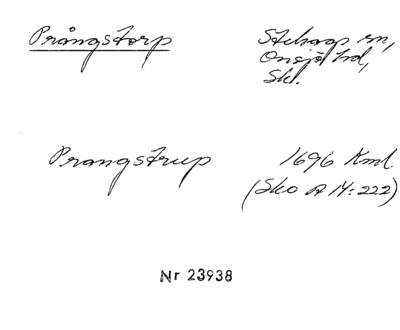 Prångstorp
Stehag sn,
Onsjö hd,
Skl.
Prangstrup
1696 Kml.
(Sko A 14:222)
Nr 23938